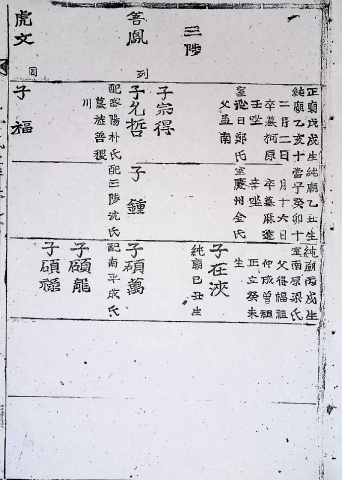 正廟戊戌生
純廟乙亥十
二月二日
卒墓柯原
壬坐
室迎日鄭氏
父孟南
三陟
子宗得
善鳳
子允哲
配密陽朴氏
川
虎文
子福
純廟乙丑生
當子癸卯十
月十六日
卒墓麻
辛坐
室慶州金氏
子鍾
配三陟沈氏
純廟丙戌生
室南原梁氏
父得福祖
仲成曾祖
正立癸未
生
子在浹
純廟己丑生
子碩萬
配南平成氏
子碩龍
子碩福